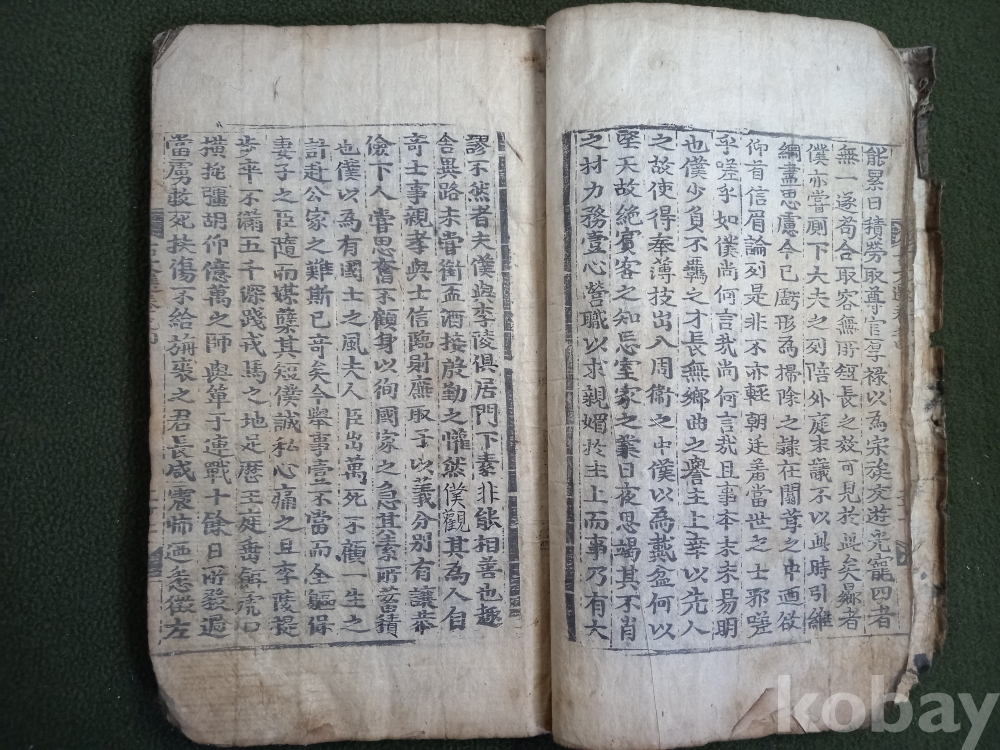 能累日積勞取尊官厚祿以為宗族交遊光寵四者
無一遂苟合取容無所短長之效可見於此矣鄉者
僕亦嘗厠下大夫之列陪外庭末議不以此時引維
綱盡思慮今已虧形為掃除之隸在闒茸之中乃欲
仰首信眉論列是非不亦輕朝廷羞當世之士邪嗟
乎嗟乎如僕尚何言哉尚何言哉且事本末未易明
也僕少負不羈之才長無鄉曲之譽主上幸以先人
之故使得奉薄技出入周衛之中僕以為戴盆何以
望天故絶賓客之知忘室家之業日夜思竭其不肖
之材力務壹心營職以求親媚於主上而事乃有大
謬不然者夫僕與李陵俱居門下素非能相善也趣
舍異路未嘗銜盃酒接殷勤之懽然僕觀其為人自
奇士事親孝與士信臨財廉取予以義分別有讓恭
儉下人嘗思奮不顧身以徇國家之急其素所蓄積
也僕以為有國士之風夫人臣出萬死不顧一生之
計赴公家之難斯已奇矣今舉事壹不當而全軀保
妻子之臣隨而媒孽其短僕誠私心痛之且李陵提
步卒不滿五千深踐戎馬之地足歷王庭垂餌虎口
橫挑彊胡仰億萬之師與單于連戰十餘日所殺過
當虜救死扶傷不給旃裘之君長咸震怖迺悉徵左
kobay